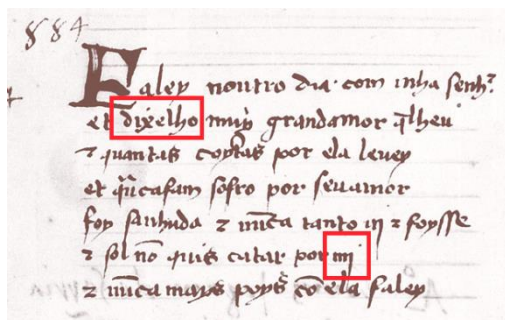 884
Faley noutro dia com mha senhʳ
et dixelho muy grandamor q̃lheu
⁊ quantas coytas por ela levey
et q̃ncafam sofro por seuamor
foy sanhuda ⁊ nũca tanto ui ⁊ foysse
⁊ sol nõ quis catar por mi
⁊ nũca mays poys cõ ela faley